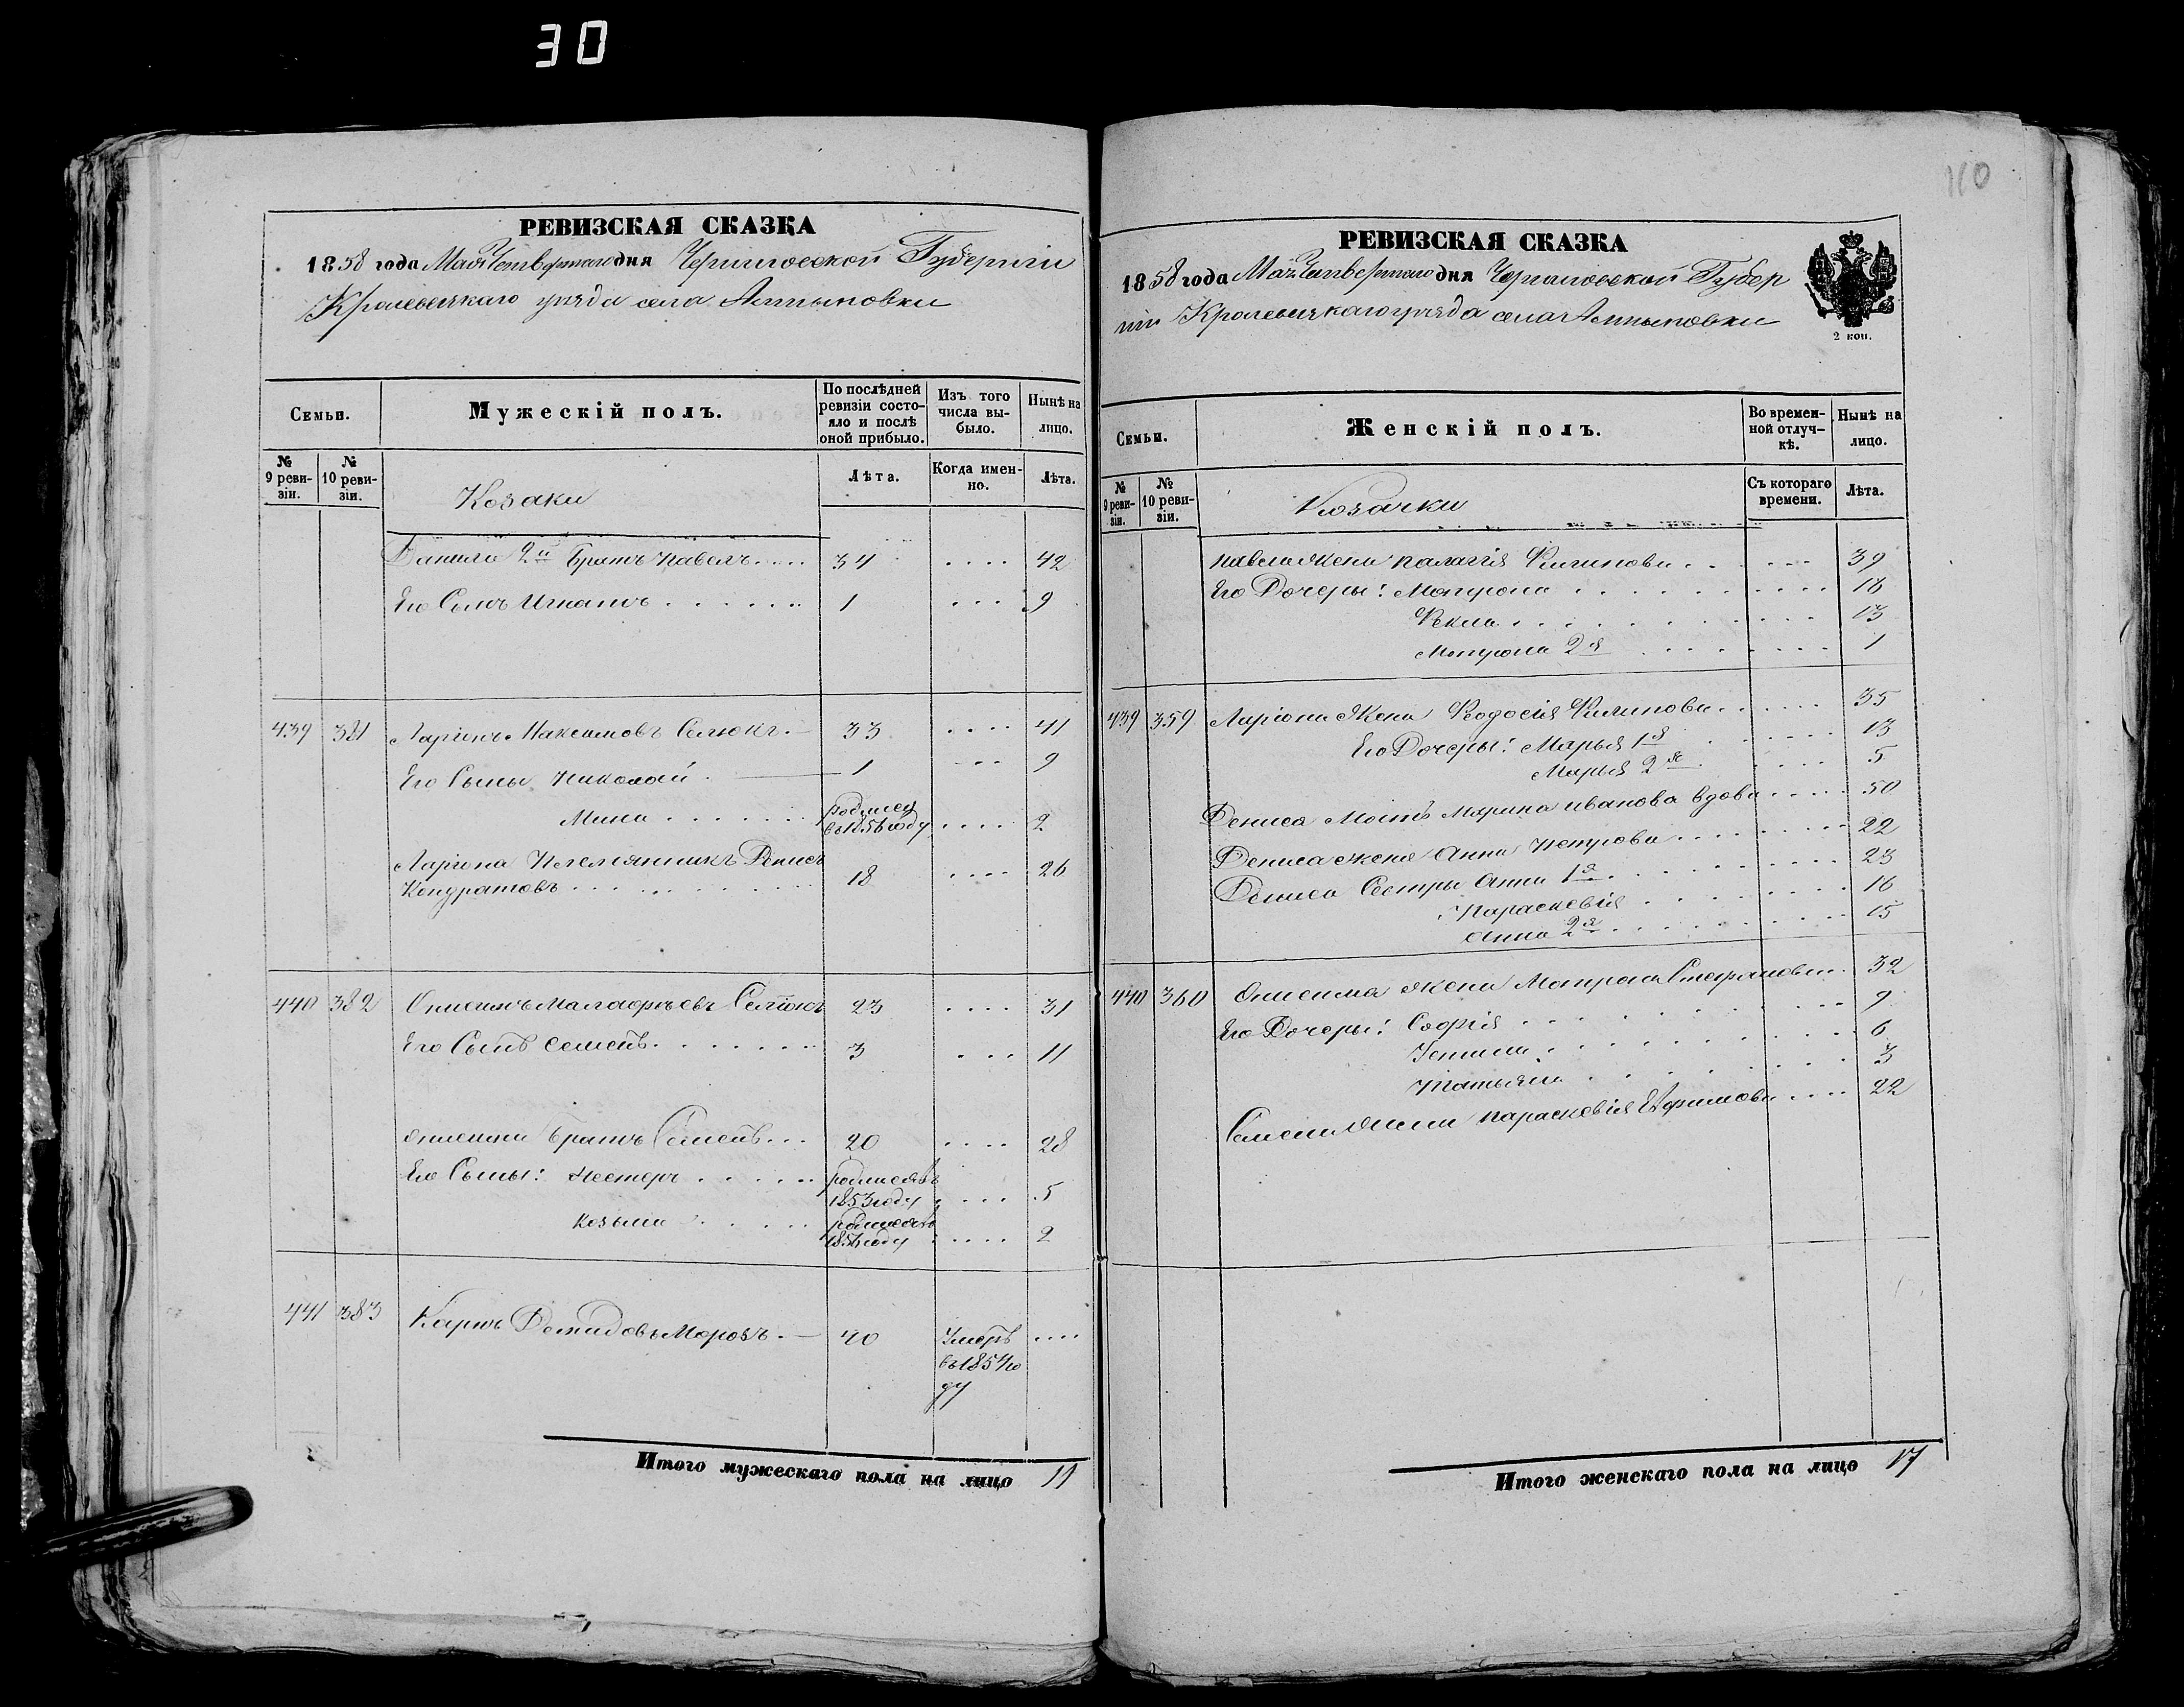 30
110
РЕВИЗСКАЯ СКАЗКА
1858 года Мая Четвертаго дня Черниговской Губернии
Кролевецкаго уезда села Алтыновки
Семьи.
Мужескій полъ.
По послѣдней ревизіи состояло и послѣ оной прибыло.
Изъ того числа выбыло.
Нынѣ на лицо.
№ 9 ревизіи.
№ 10 ревизіи.
Козаки
Лѣта.
Когда именно.
Лѣта.
Данила 2й Братъ Павелъ 34 42
Его Сынъ Игнатъ 1 9
439 381 Ларіонъ Максимовъ Селюкъ 33 41
Его Сыны Николай 1 9
Мина родился в 1856 году 2
Ларіона Племянникъ Денисъ
Кондратовъ 18 26
440 382 Онисимъ Малафѣевъ Селюкъ 23 31
Его Сынъ Семенъ 3 11
Онисима Братъ Семенъ 20 28
Его Сыны: Нестеръ родился въ 1853 году 5
Козьма родился въ 1856 году 2
441 383 Карпъ Демидовъ Морозъ 40 Умеръ въ 1854 году
Итого мужескаго пола на лицо 11
РЕВИЗСКАЯ СКАЗКА
1858 года Мая Четвертаго дня Черниговской Губер
нии Кролевецкаго уезда села Алтыновки
2 коп.
Семьи.
Женскій полъ.
Во временной отлучкѣ.
Нынѣ на лицо.
№ 9 ревизіи.
№ 10 ревизіи.
Козачки
Съ котораго времени.
Лѣта.
Павела Жена Палагія Филипова 39
Его Дочеры: Мотрона 18
Фекла 13
Мотрона 2я 1
439 359 Ларіона Жена Феодосія Филипова 35
Его Дочеры: Марья 1я 13
Марья 2я 5
Дениса Мать Марина Иванова вдова 50
Дениса жена Анна Петрова 22
Дениса Сестры Анна 1я 23
Параскевія 16
Анна 2я 15
440 360 Онисима жена Мотрона Стефанова 32
Его Дочеры: Софія 9
Устина 6
Татьяна 3
Семена Жена Параскевія Ефимова 22
Итого женскаго пола на лицо 17